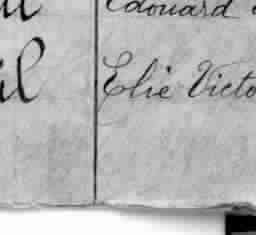 Edouard
il Elie Victo